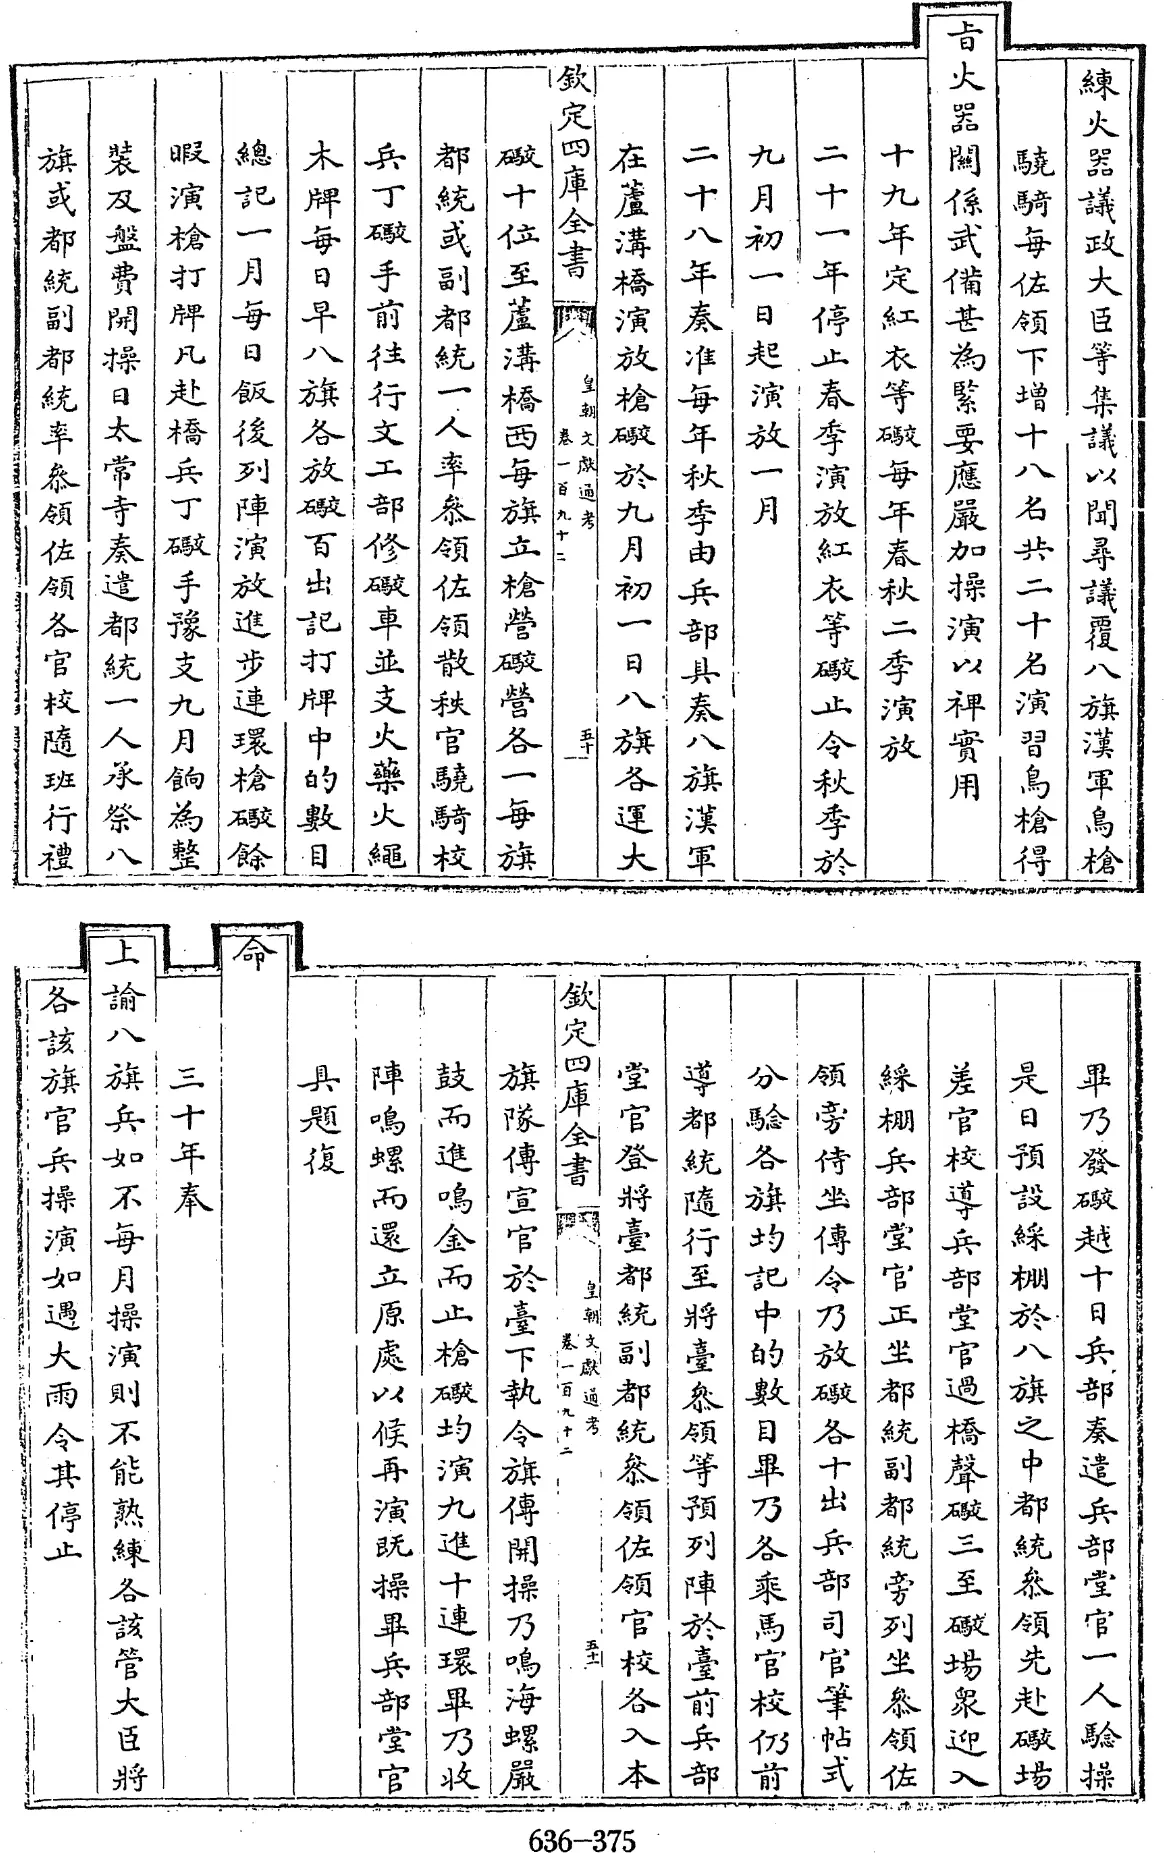 練火器議政大臣等集議以聞尋議覆八旗漢軍鳥槍
驍騎每佐領下增十八名共二十名演習鳥槍得
旨火器關係武備甚為緊要應嚴加操演以裨實用
十九年定紅衣等礮每年春秋二季演放
二十一年停止春季演放紅衣等礮止令秋季於
九月初一日起演放一月
二十八年奏准每年秋季由兵部具奏八旗漢軍
在蘆溝橋演放槍礮於九月初一日八旗各運大
欽定四庫全書
皇朝文獻通考
卷一百九十二
五十
礮十位至蘆溝橋西每旗立槍營礮營各一每旗
都統或副都統一人率叅領佐領散秩官驍騎校
兵丁礮手前往行文工部修礮車並支火藥火繩
木牌每日早八旗各放礮百出記打牌中的數目
總記一月每日飯後列陣演放進步連環槍礮餘
暇演槍打牌凡赴橋兵丁礮手豫支九月餉為整
裝及盤費開操日太常寺奏遣都統一人承祭八
旗或都統副都統率叅領佐領各官校隨班行禮
畢乃發礮越十日兵部奏遣兵部堂官一人驗操
是日預設綵棚於八旗之中都統叅領先赴礮場
差官校導兵部堂官過橋聲礮三至礮場衆迎入
綵棚兵部堂官正坐都統副都統旁列坐叅領佐
領旁侍坐傳令乃放礮各十出兵部司官筆帖式
分驗各旗均記中的數目畢乃各乘馬官校仍前
導都統隨行至將臺叅領等預列陣於臺前兵部
堂官登將臺都統副都統叅領佐領官校各入本
欽定四庫全書
皇朝文獻通考
卷一百九十二
五十一
旗隊傳宣官於臺下執令旗傳開操乃鳴海螺嚴
鼓而進鳴金而止槍礮均演九進十連環畢乃收
陣鳴螺而還立原處以候再演既操畢兵部堂官
具題復
命
三十年奉
上諭八旗兵如不每月操演則不能熟練各該管大臣將
各該旗官兵操演如遇大雨令其停止
636-375